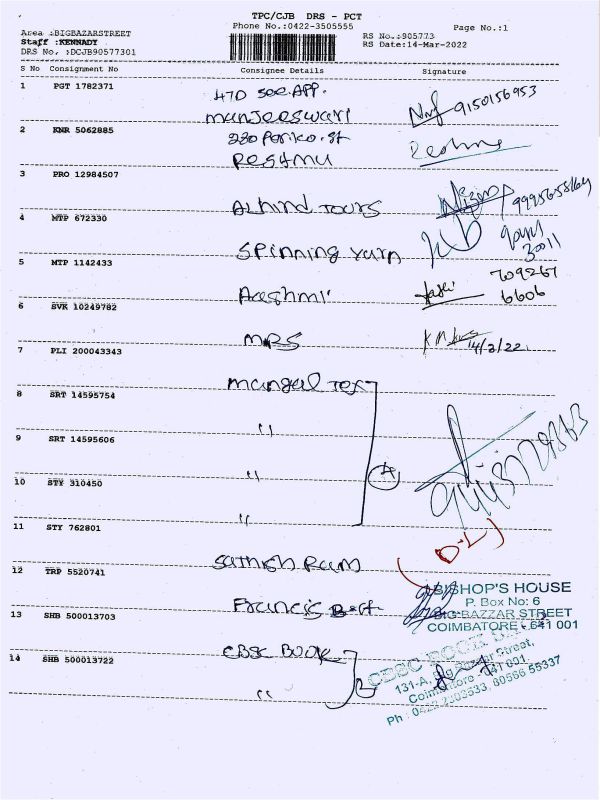 TPC/CJB DRS - PCT
Phone No.:0422-3505555
Page No.:1
Area :BIGBAZARSTREET
Staff :KENNADY
DRS No, :DCJB90577301
RS No.:905773
RS Date:14-Mar-2022
S No Consignment No Consignee Details Signature
1 PGT 1782371
47D See.APP.
manjeeswari 9150156953
2 KNR 5062885
220 Per.ko.st
Reshmu Reshma
3 PRO 12984507
Alhind Tours
4 MTP 672330
Spinning yarn
30011
5 MTP 1142433
Aashmi 709267
6606
6 SVK 10249782
MRS 14/3/22
7 PLI 200043343
Mangal Tex
8 SRT 14595754
"
9 SRT 14595606
"
10 STY 310450
"
4
11 STY 762801
Sathish Ram
D-L
12 TRP 5520741
Francis
BISHOP'S HOUSE
P. Box No: 6
BIG BAZZAR STREET
COIMBATORE - 641 001
13 SHB 500013703
CBSC Book
14 SHB 500013722
"
2
CBSC BOOK
131-A, Big Bazaar Street,
Coimbatore - 641 001.
Ph : 0422 80566 55337